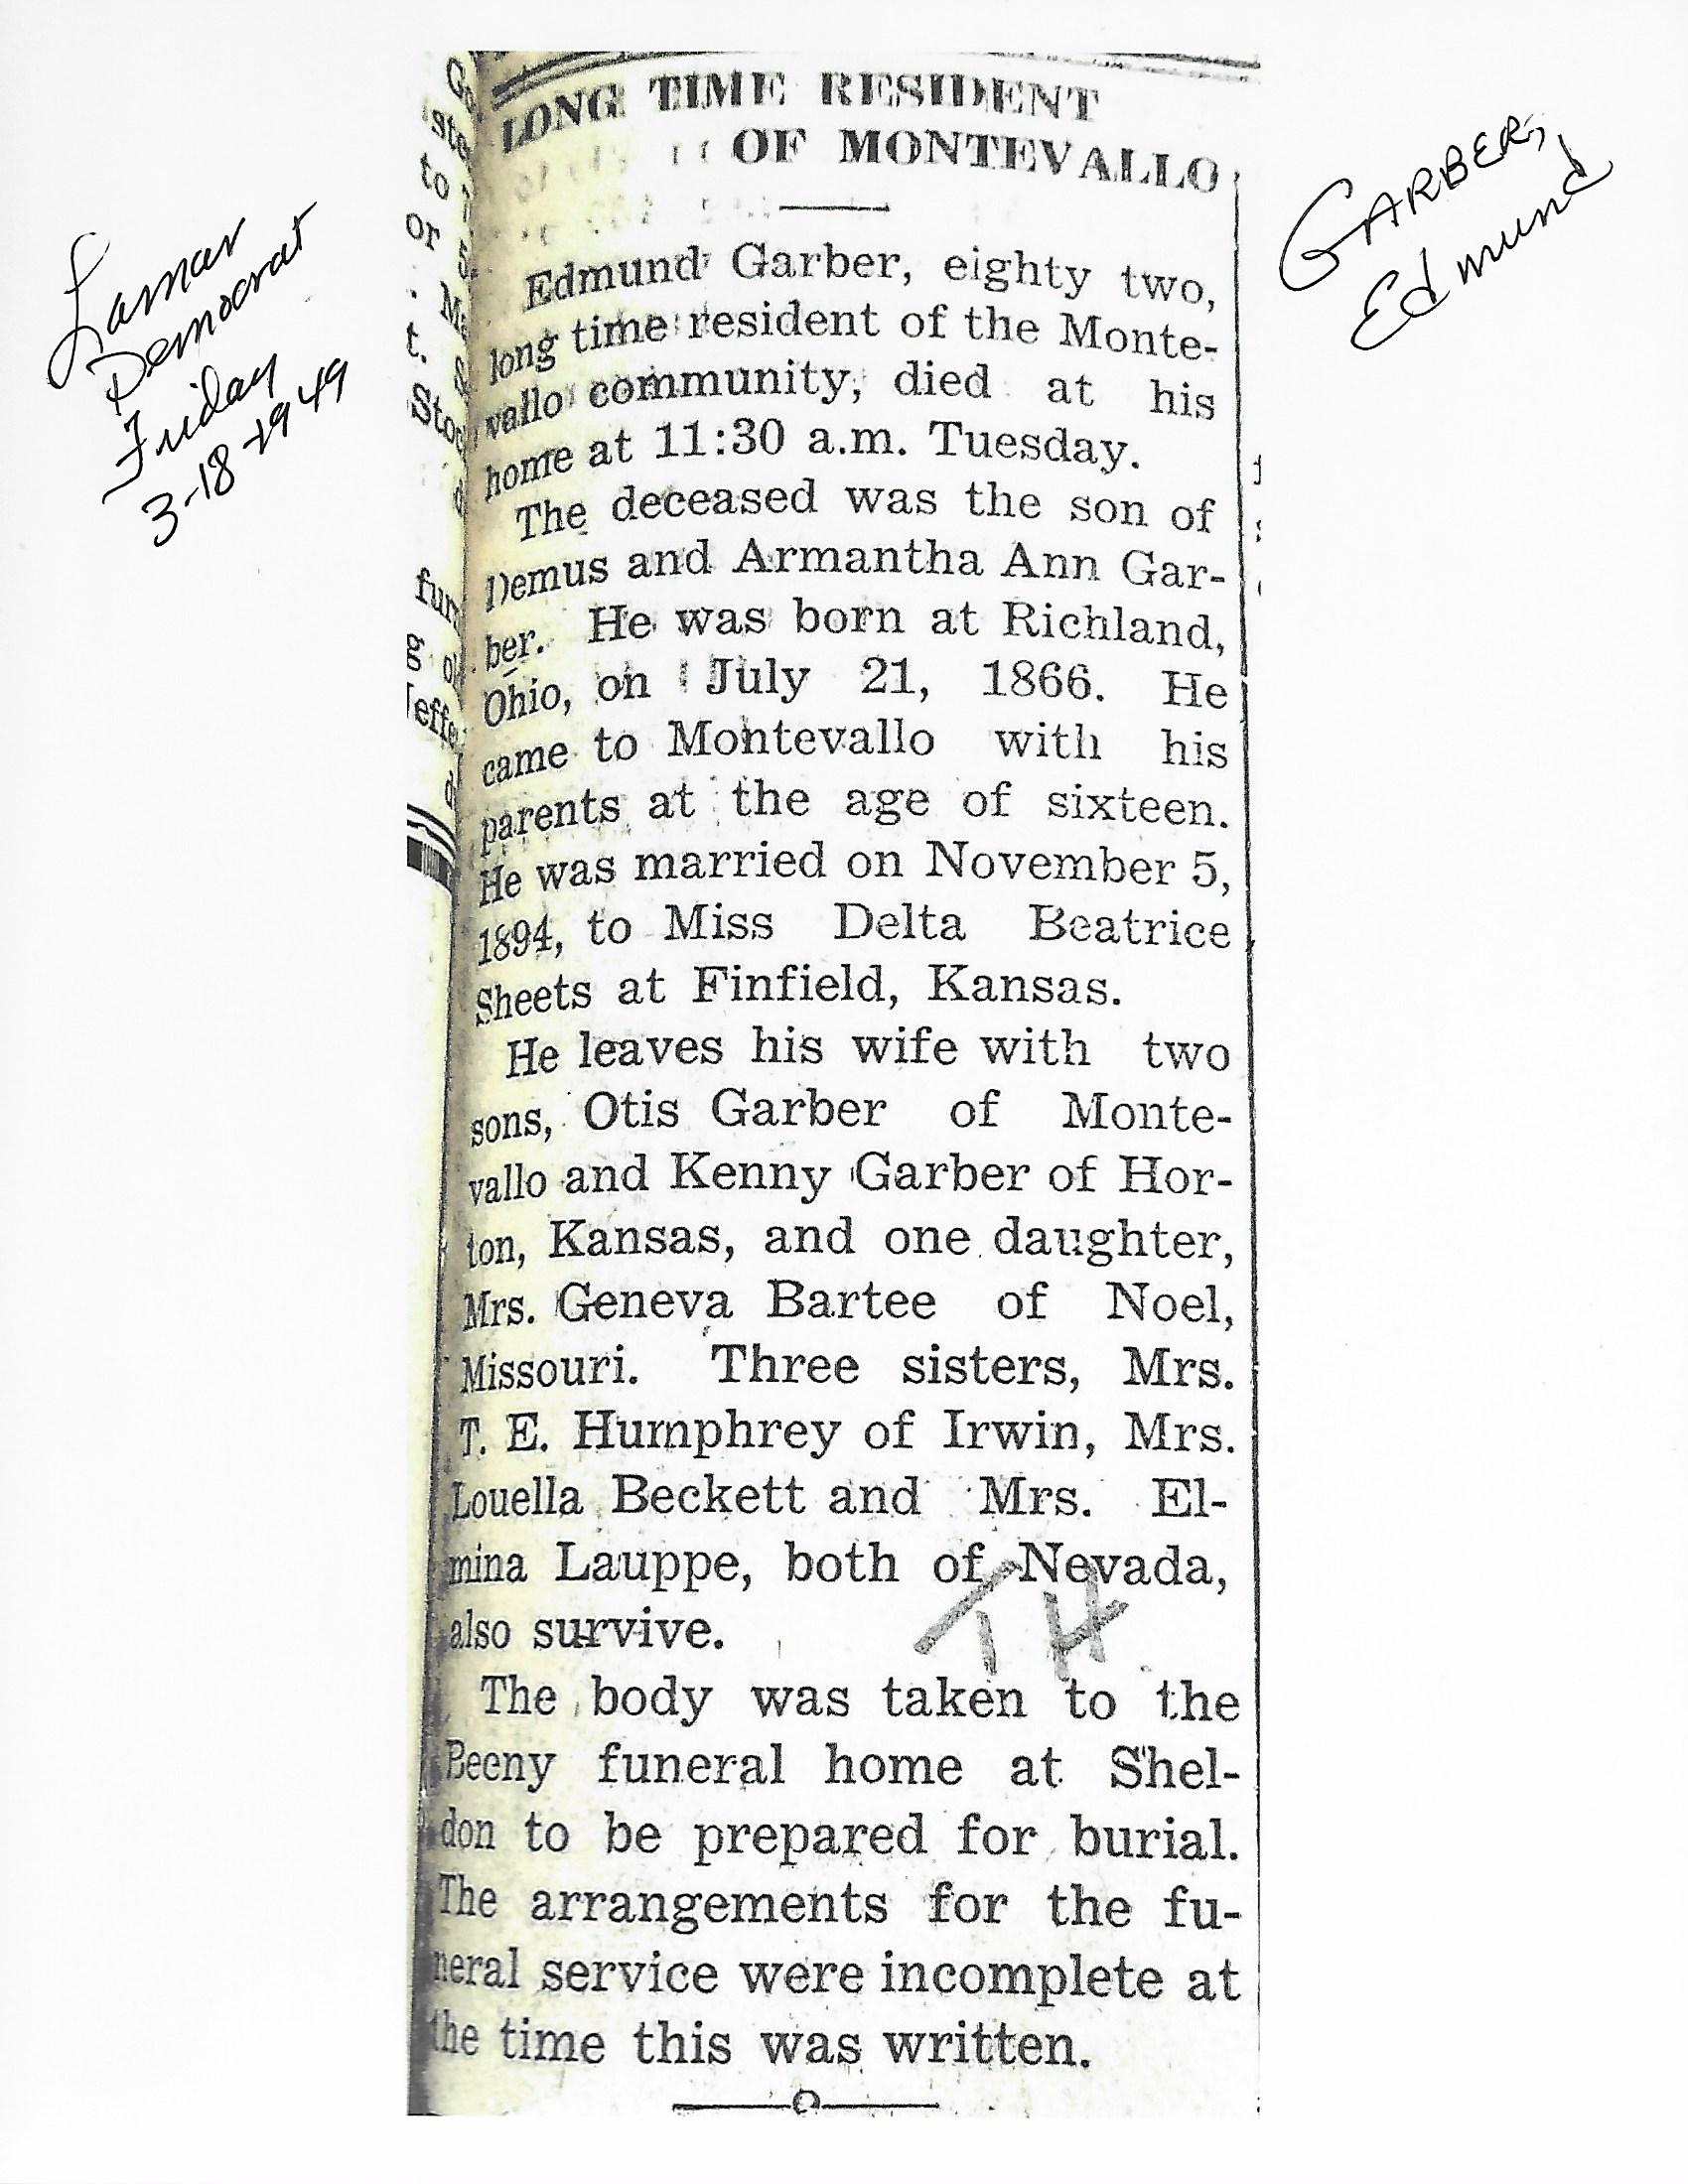 Lamar
Democrat
Friday
3-18-1949
GARBER,
Edmund
LONG TIME RESIDENT
OF MONTEVALLO
Edmund Garber, eighty two,
long time resident of the Monte-
vallo community, died at his
home at 11:30 a.m. Tuesday.
The deceased was the son of
Demus and Armantha Ann Gar-
ber. He was born at Richland,
Ohio, on July 21, 1866. He
came to Montevallo with his
parents at the age of sixteen.
He was married on November 5,
1894, to Miss Delta Beatrice
Sheets at Finfield, Kansas.
He leaves his wife with two
sons, Otis Garber of Monte-
vallo and Kenny Garber of Hor-
ton, Kansas, and one daughter,
Mrs. Geneva Bartee of Noel,
Missouri. Three sisters, Mrs.
T. E. Humphrey of Irwin, Mrs.
Louella Beckett and Mrs. El-
mina Lauppe, both of Nevada,
also survive.
TH
The body was taken to the
Beeny funeral home at Shel-
don to be prepared for burial.
The arrangements for the fu-
neral service were incomplete at
the time this was written.